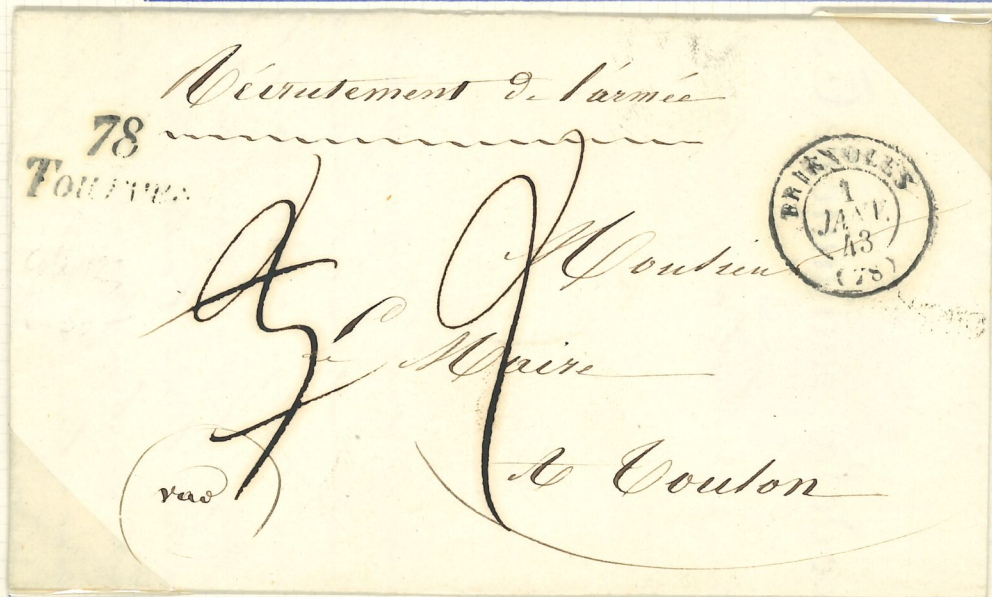 Récrutement de l'armée
78
TOURVES
BRIGNOLES
1
JANV.
43
(78)
Monsieur
Le Maire
A Toulon